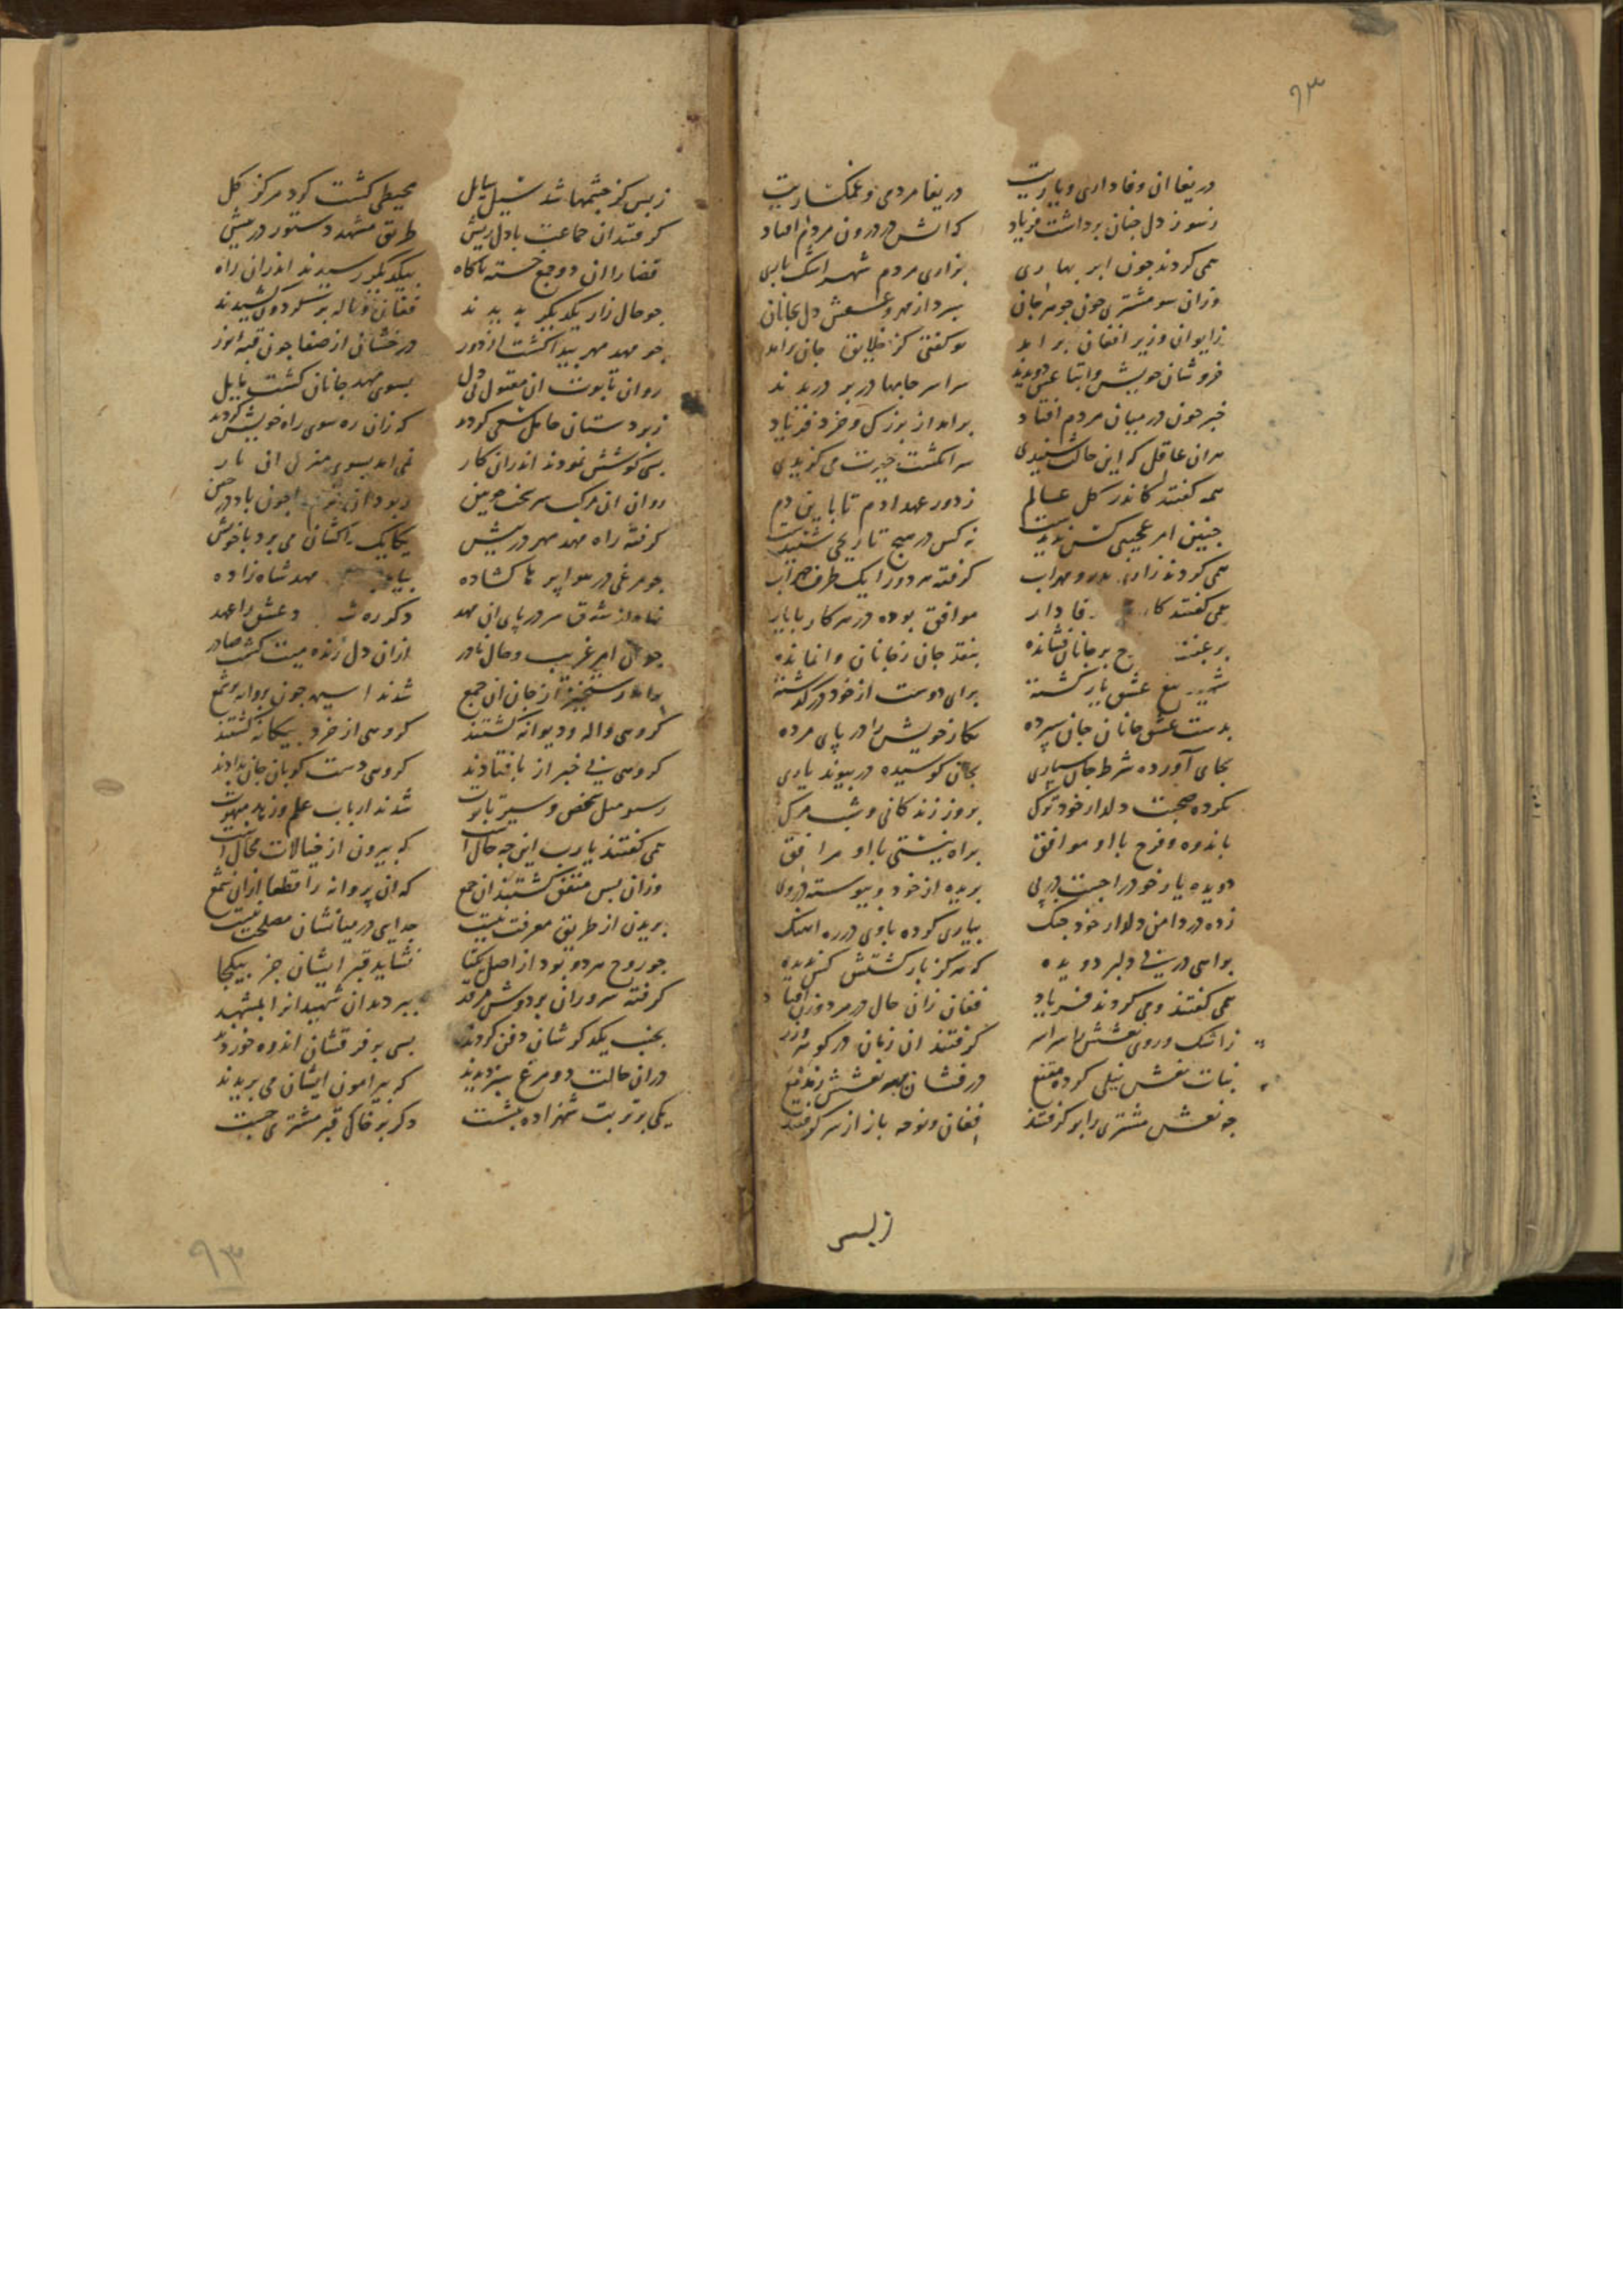 ۹۳
دریغا ان وفاداری و یاریت دریغا مردمی و غمکساریت
ز سوز دل جنان برداشت فریاد کاتش در درون مردم افتاد
همی کردند جون ابر بهاری بزاری مردم شهر اشک باری
وزان سو مشتری جون جوهر جان سپرد از مهر و دل بجانان
ز ایوان وزیر افغان برامد تو کفتی کز خلایق جان برامد
خروشان خویش و اتباعش دویدند سراسر جامها در بر دریدند
خبر جون در میان مردم افتاد برامد از بزرک و خرد فریاد
هران عاقل که این حالت شنیدی سر انکشت حیرت می کزیدی
همه کفتند کاندر کل عالم ز دور عهد ادم تا باین دم
جنین امر عجیبی کس ندیدست نه کس در هیچ تاریخی شنیدست
همی کردند زاری بدر و مهراب کرفته هر دو را یک طرف
همی کفتند کای وفادار موافق بوده در هر کار با یار
بر جانان فشانده بنقد جان ز جانان وانمانده
شهید تیغ عشق یار کشته برای دوست از خود درکذشته
بدست عشق جانان جان سپرده بکار خویش را در پای مرده
بجای آورده شرط جان سپاری بجان کوشیده در پیوند یاری
نکرده صحبت دلدار خود ترک بروز زندکانی و شب مرک
باندوه و فرح با او موافق براه نیستی با او مرافق
دویده یار خود را جست در پی بریده از خود و پیوسته در وی
زده در دامن دلدار خود جنک بیاری کرده با وی در ره اهنک
براهی در پی دلبر دویده که هرکز بازکشتش کس ندیده
همی کفتند و می کردند فریاد فغان زان حال در مرد و زن افتاد
ز اشک و روی نعشش را سراسر کرفتند ان زمان در کوهر و زر
بنات نعش نیلی کرده مقنع درفشان مهر نعشش
جو نعش مشتری را برکرفتند فغان و نوحه باز از سر کرفتند
ز بس
ز بس کز جشمها شد سیل سایل محیطی کشت کرد مرکز کل
کرفتند ان جماعت با دل ریش طریق مشهد دستور در پیش
قضا را ان دو جمع خسته ناکاه بیکدیکر رسیدند اندران راه
جو حال زار یکدیکر بدیدند فغان و ناله بر کردون کشیدند
جو مهد مهر پیدا کشت از دور درخشان از صفا جون قبه نور
روان تابوت ان مقتول بی دل بسوی مهد جانان کشت مایل
ز بردستان حامل سعی کردند که زان ره سوی راه خویش کردند
بسی کوشش نمودند اندران کار نمی امد بسوی منزل ان بار
روان ان مرکب سرسخت جوبین جون باد
کرفته راه مهد مهر در پیش یکایک را کشان می برد با خویش
جو مرغی در هوا پرها کشاده مهد شاه زاده
نهاد از شوق سر در پای ان مهد دکر ره عشق را عهد
جو ان امر غریب و حال نادر ازان دل زنده میت کشت صادر
برامد رستخیز از جان ان جمع شدند اسیمه جون پروانه بر شمع
کروهی واله و دیوانه کشتند کروهی از خرد بیکانه کشتند
کروهی بی خبر از پا فتادند کروهی دست کوبان جان بدادند
شدند ارباب علم و زهد مبهوت
همی کفتند یارب این جه حال است که بیرون از خیالات محال است
وزان پس متفق کشتند ان جمع که ان پروانه را قطعا ازان شمع
بریدن از طریق معرفت نیست جدایی در میانشان مصلحت نیست
جو روح هر دو بود از اصل یکتا نشاید قبر ایشان جز بیکجا
کرفته سروران بر دوش مرقد ببردند ان شهیدانرا بمشهد
بجنب یکدکرشان دفن کردند بسی بر فرقتشان اندوه خوردند
دران حالت دو مرغ سبز دیدند که پیرامون ایشان می پریدند
یکی بر تربت شهزاده بنشست دکر بر خاک قبر مشتری جست
۹۳